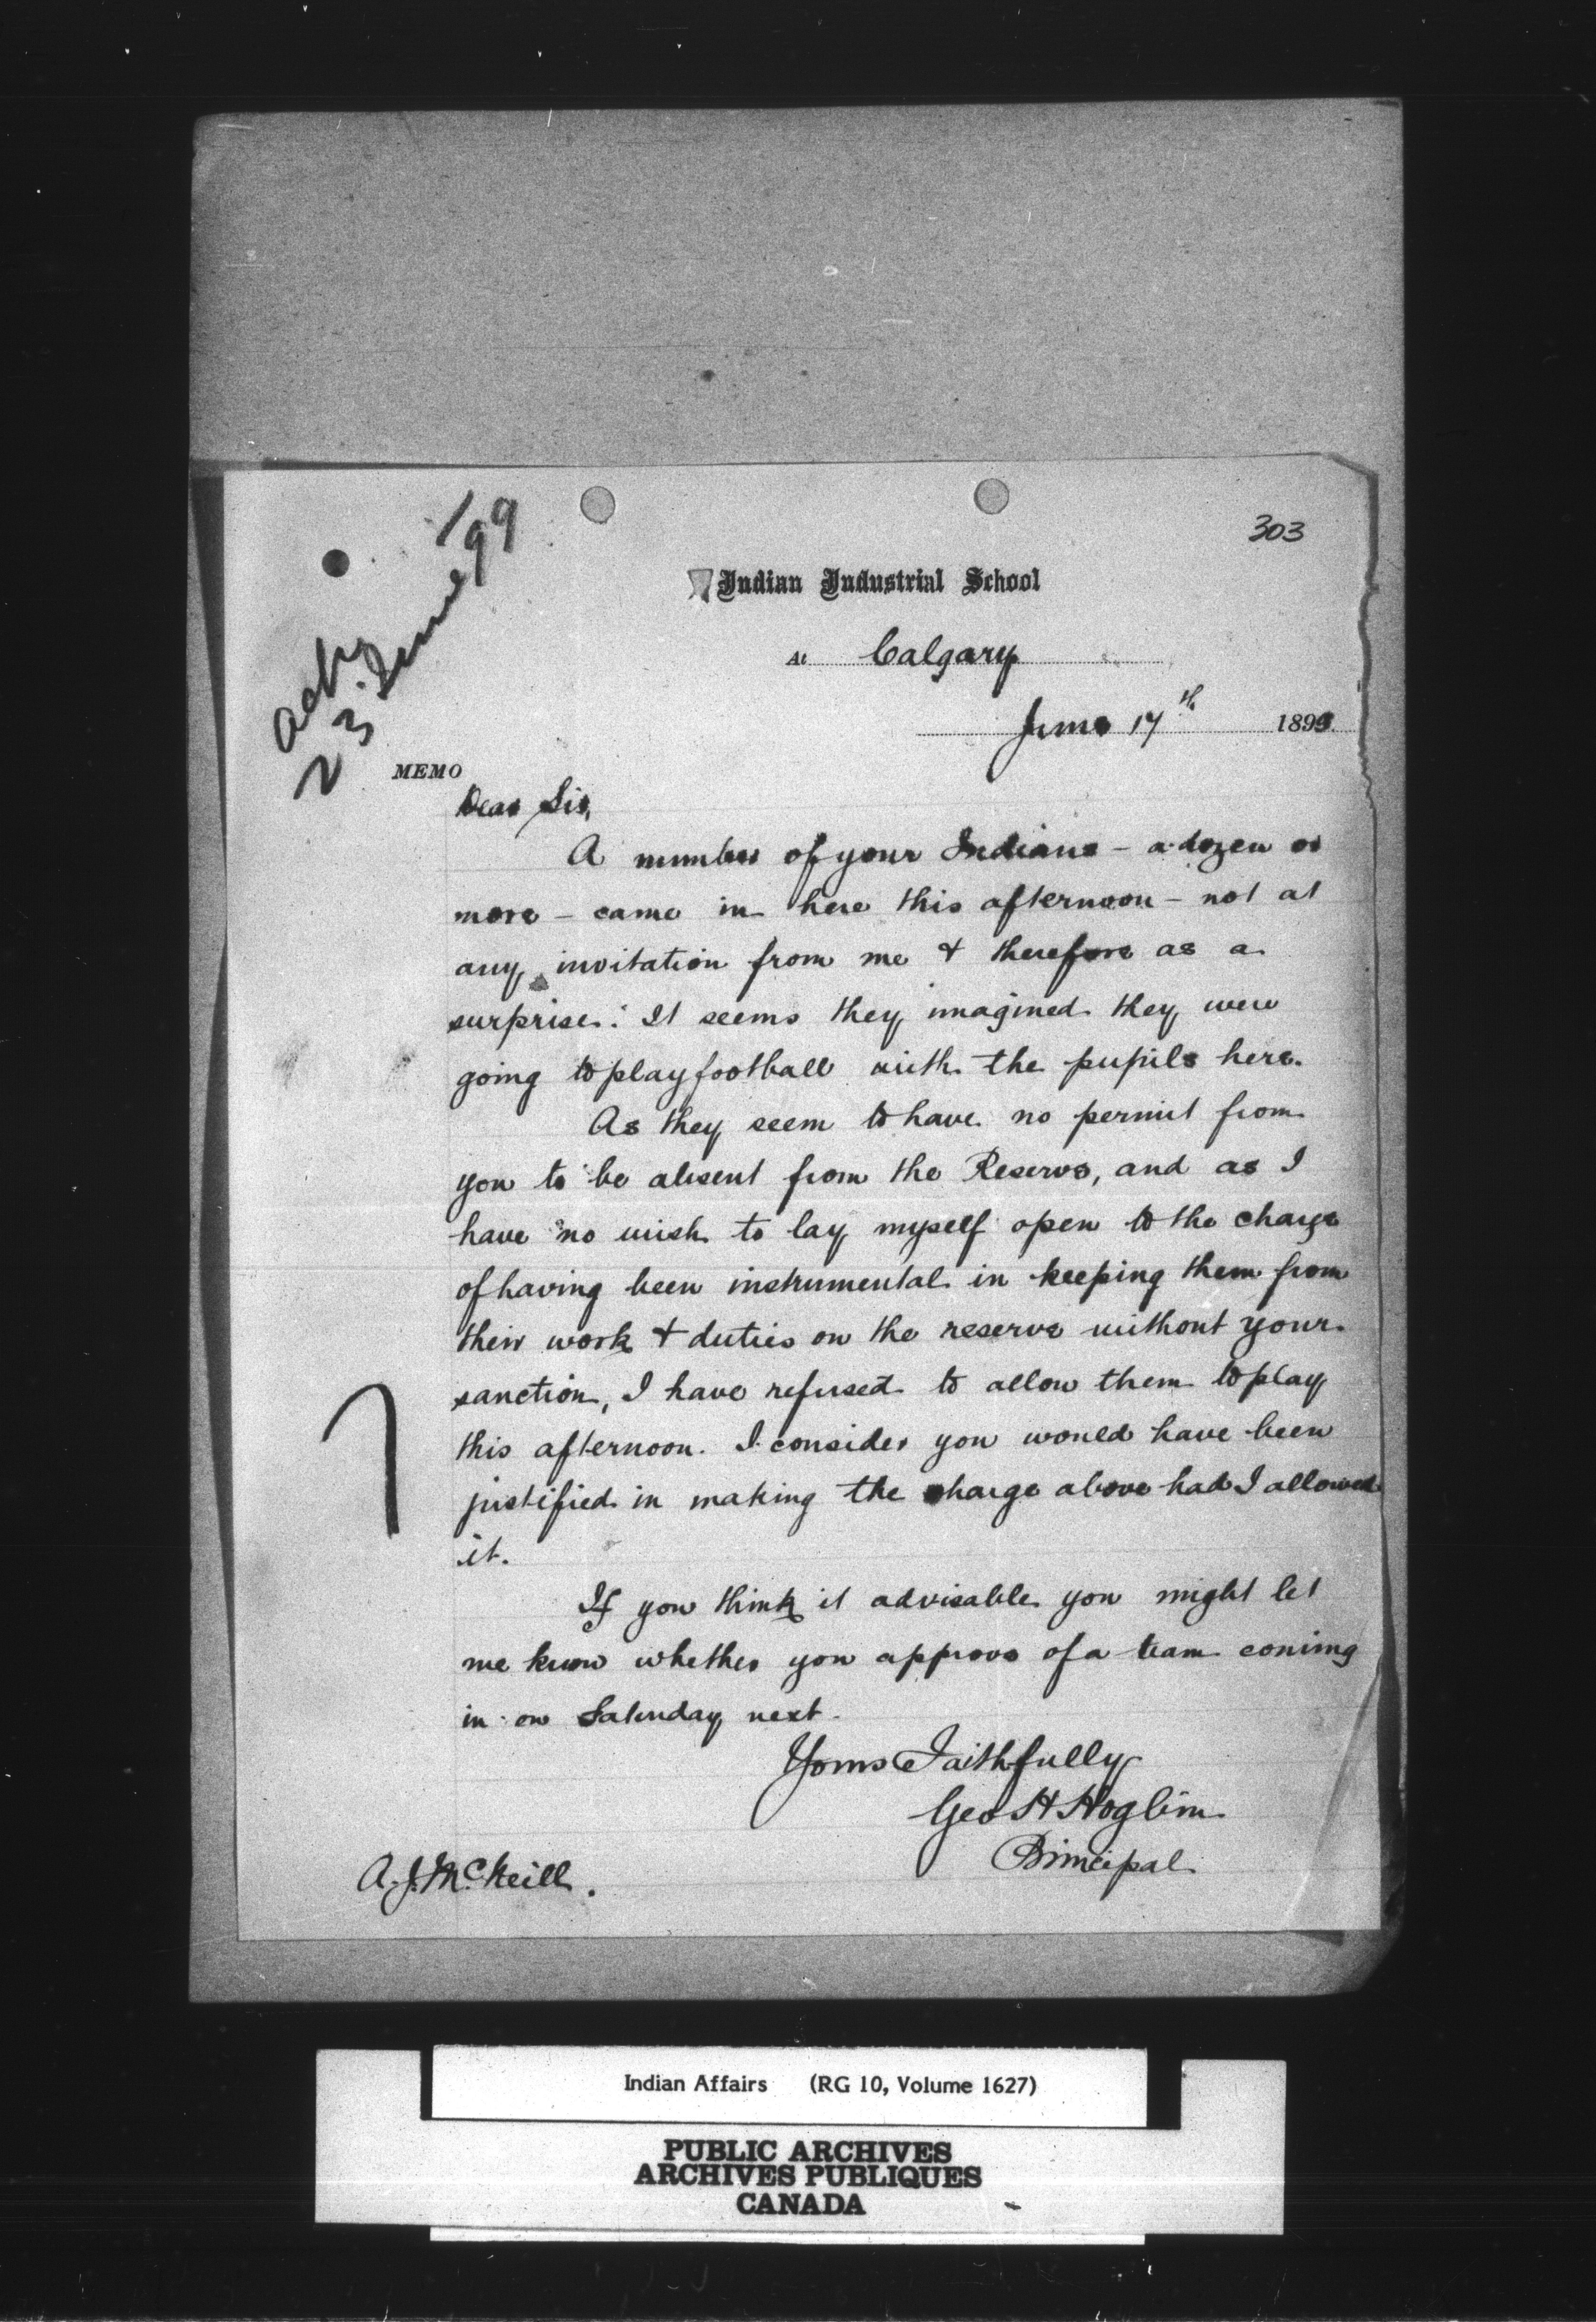 303
Ack.
23 June/99
Indian Industrial School
At Calgary
June 17th 1899.
MEMO
Dear Sir,
A number of your Indians - a dozen or
more - came in here this afternoon - not at
any invitation from me & therefore as a
surprise. It seems they imagined they were
going to play football with the pupils here.
As they seem to have no permit from
you to be absent from the Reserve, and as I
have no wish to lay myself open to the charge
of having been instrumental in keeping them from
their work & duties on the reserve without your
sanction, I have refused to allow them to play
this afternoon. I consider you would have been
justified in making the charge above had I allowed
it.
If you think it advisable you might let
me know whether you approve of a team coming
in on Saturday next.
Yours Faithfully
Geo H Hogbin
Principal
A. J. McNeill.
Indian Affairs (RG 10, Volume 1627)
PUBLIC ARCHIVES
ARCHIVES PUBLIQUES
CANADA